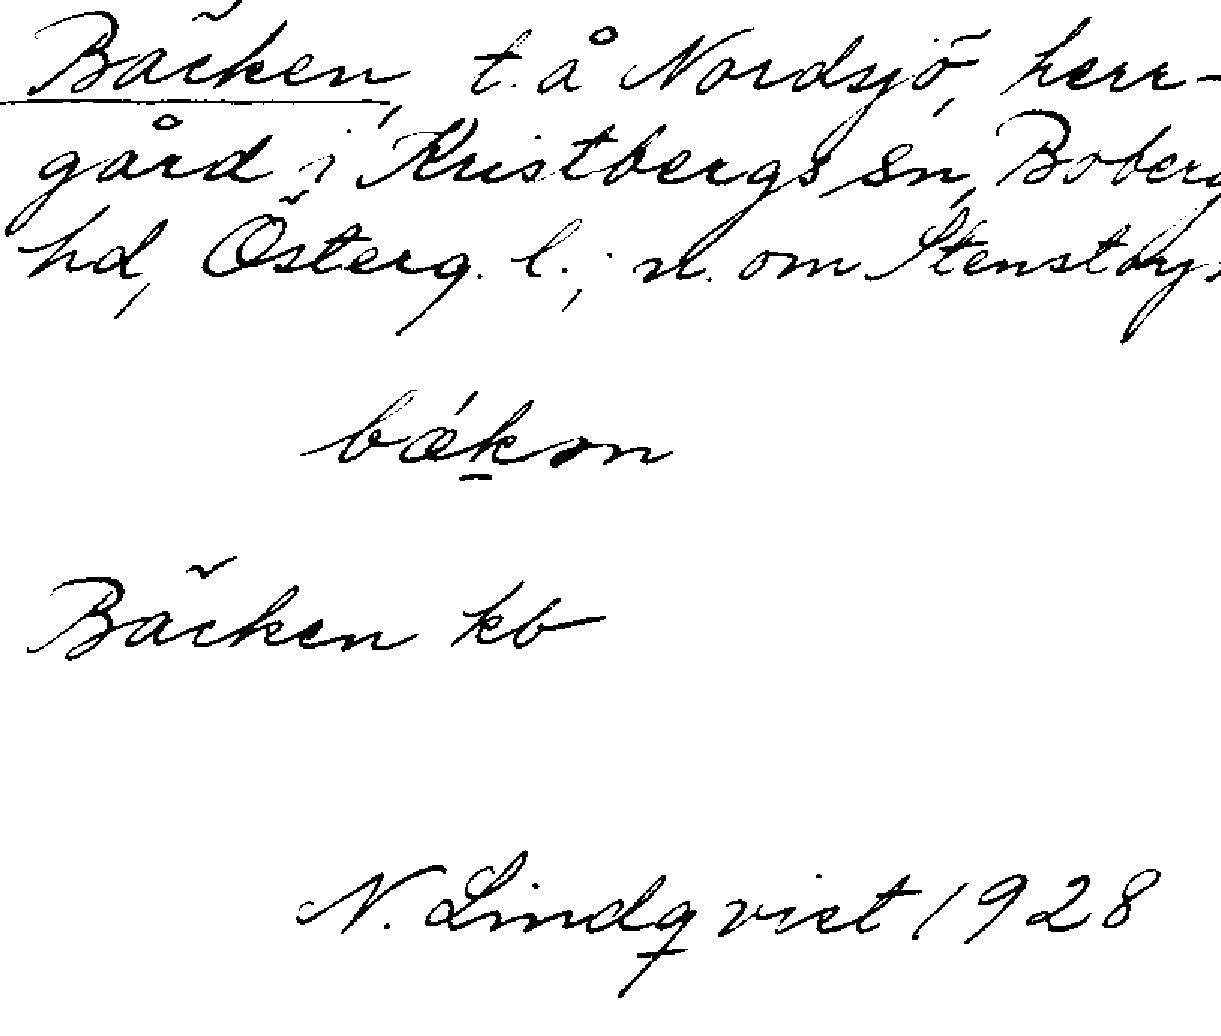 Bäcken, t. å Nordsjö, herr-
gård i Kristbergs sn, Boberg
hd, Österg. l.; n. om Stensby
bǽkən
Bäcken kb
N. Lindqvist 1928